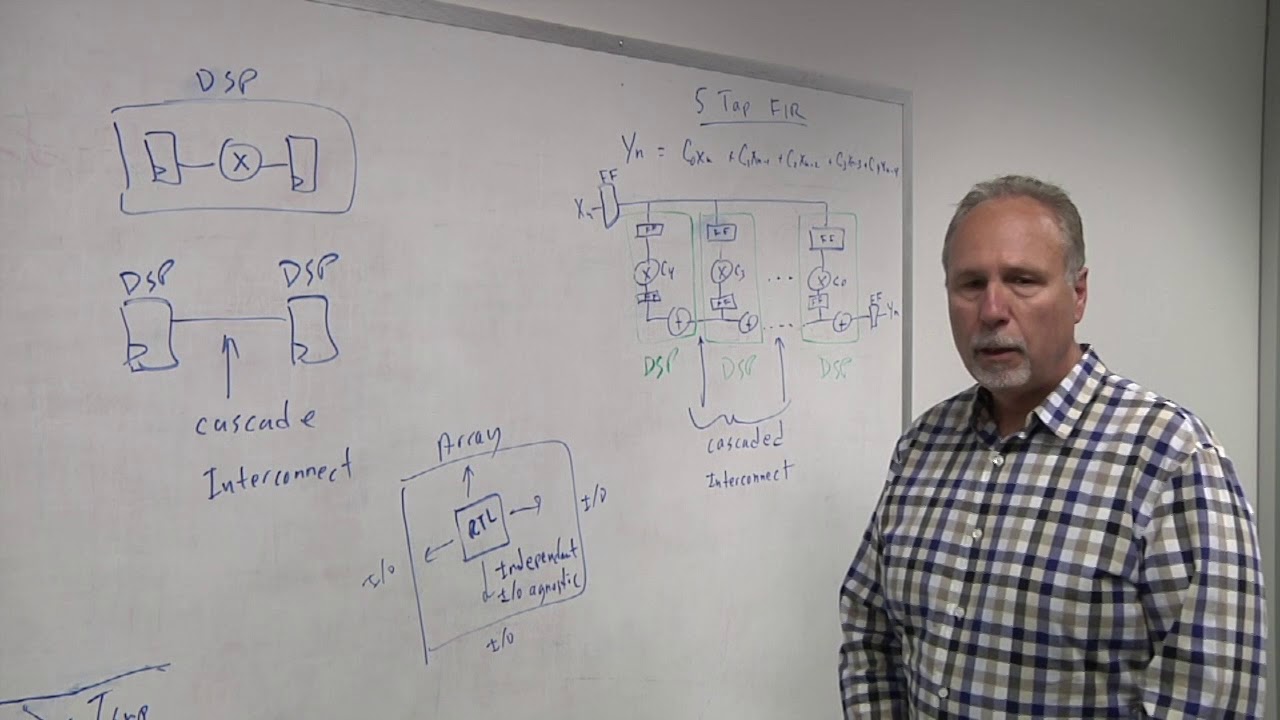 DSP
X
DSP DSP
cascade
Interconnect
Array
RTL
I/O
I/O
Independent
I/O agnostic
I/O
5 Tap FIR
Yn = C0Xn + C1Xn-1 + C2Xn-2 + C3Xn-3 + C4Xn-4
FF
Xn
FF FF FF
X C4 X C3 ... X C0
FF FF FF
+ + ... + FF Yn
DSP DSP DSP
cascaded
Interconnect